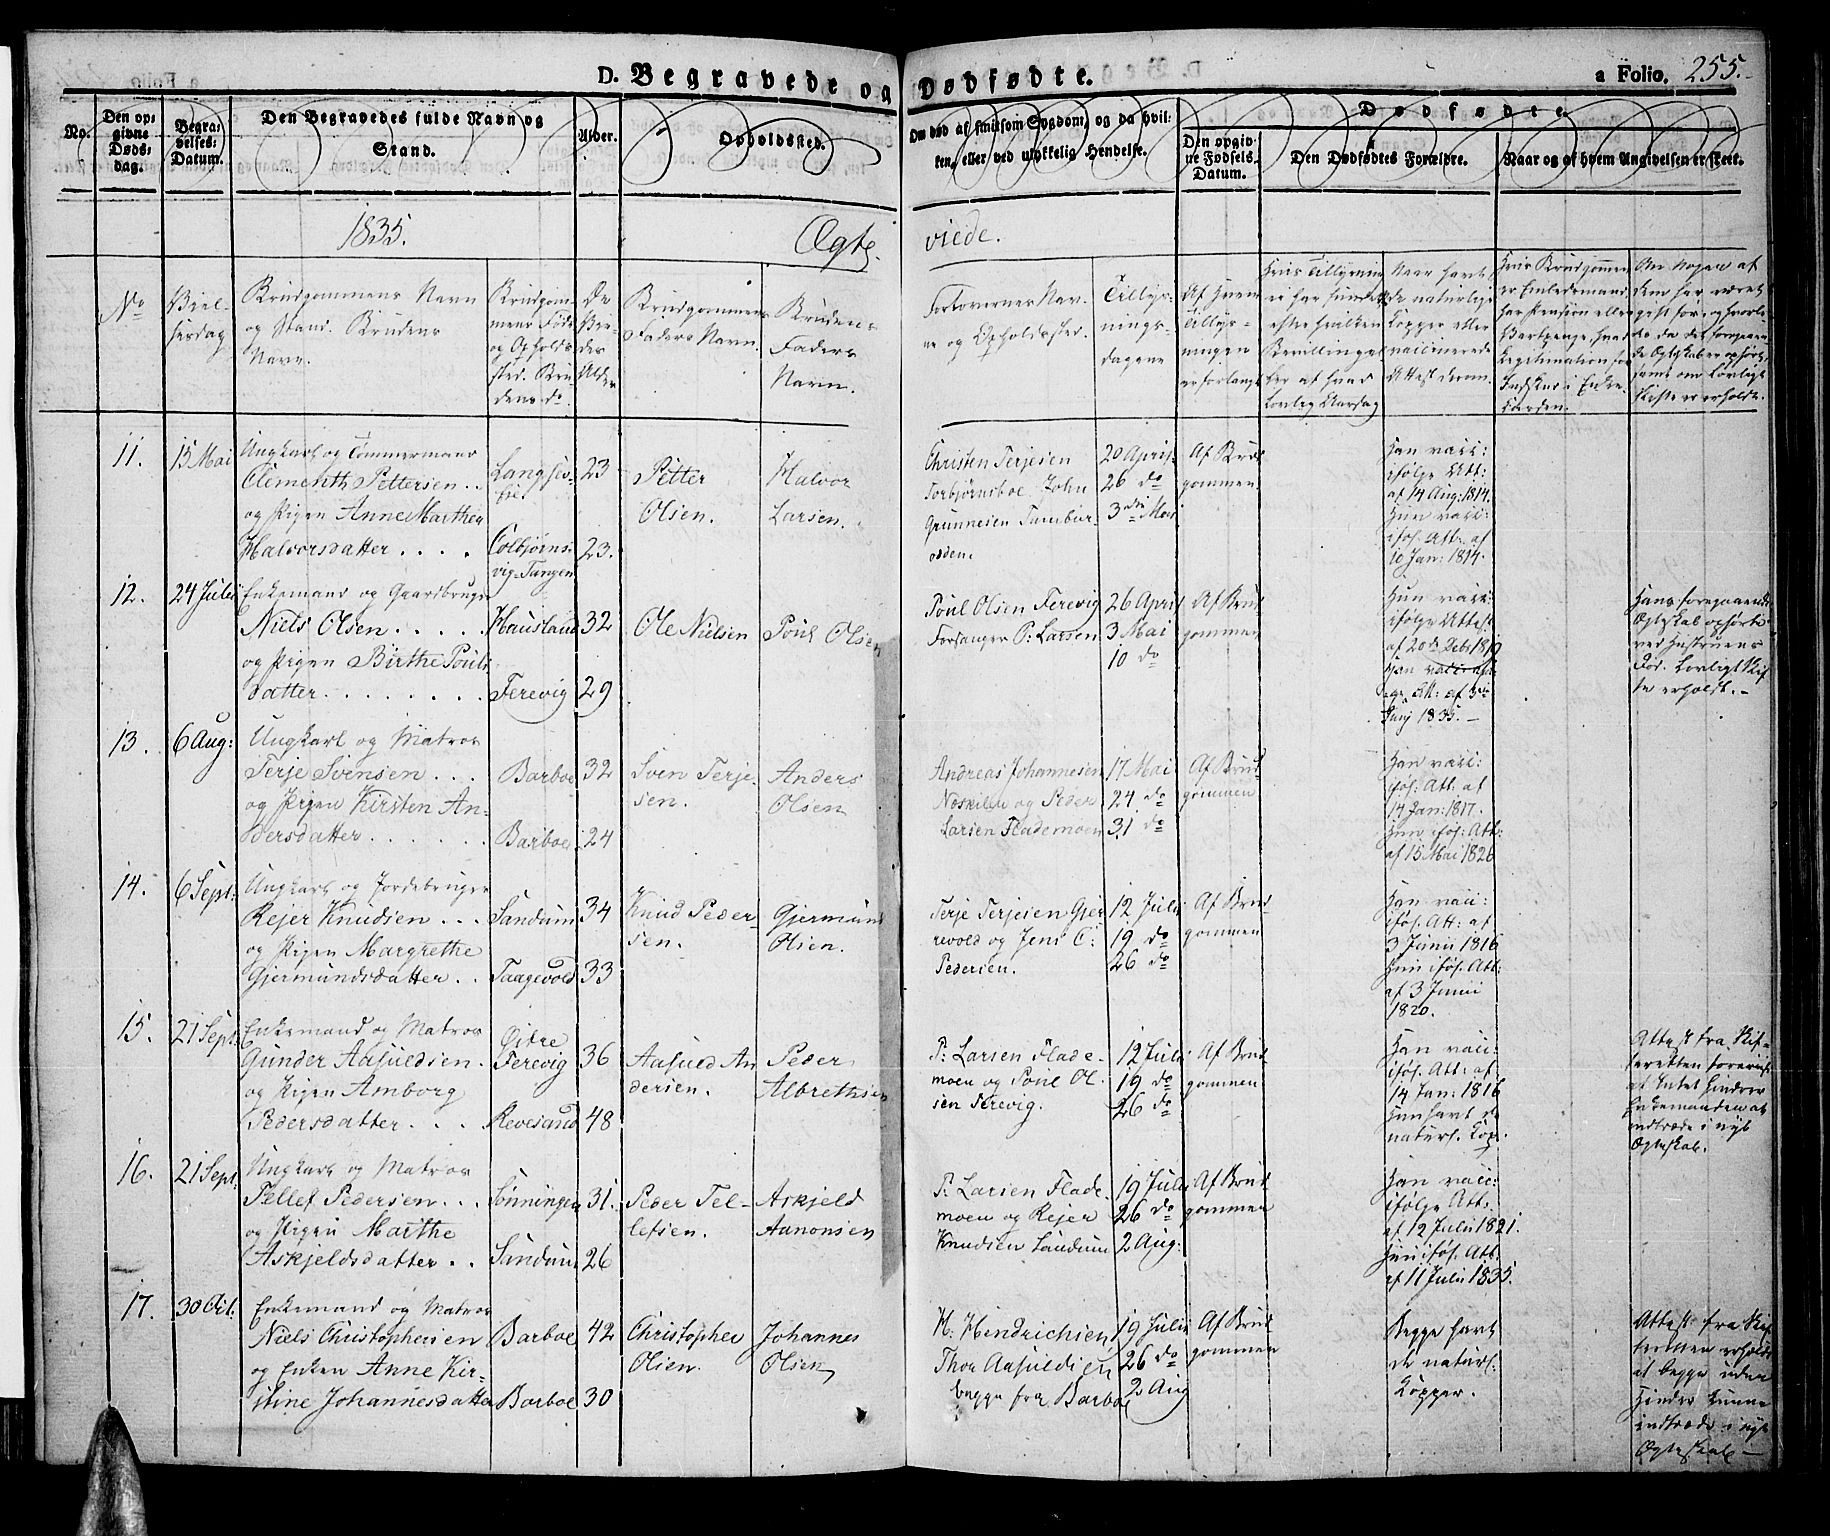 D. Begravede og Dødfødte.
a Folio. 255.
No.
Den op-
givne
Døds-
dag.
Begra-
velses-
Datum.
Den Begravedes fulde Navn og
Stand.
Alder.
Opholdssted.
Om død af smitsom Sygdom, og da hvil-
ken, eller ved ulykkelig Hendelse.
Dødfødte.
Den opgiv-
ne Fødsels
Datum.
Den Dødfødtes Forældre.
Naar og af hvem Angivelsen er skeet.
1835.
Ægte
viede.
No
Viel-
sesdag
Brudgommens Navn
og Stand. Brudens
Navn.
Brudgom-
mens Føde
og Opholds
sted. Bru
dens do
De
Vie-
des
Alder
Brudgommens
Faders Navn.
Brudens
Faders
Navn.
Forlovernes Nav-
ne og Opholdssted.
Tillys-
nings-
dagene
Af hvem
Tillys-
ningen
er forlangt
Hvis Tillysning
ei har fundet
efter hvilken
Bevilling el
ler at hvad
Lovlig Aarsag
Naar havt
de naturlige
Kopper eller
vaccinerede
Attest derom.
Hvis Brudgommen
er Embedsmand,
har Pension eller
Vartpenge, hvad
Legitimation for
Indskud i Enke
Kassen.
Om Nogen af
dem har været
gift før, og hvorle-
des da det foregaaen
de Ægteskab er ophørt,
samt om Lovligt
Skifte er erholdt.
11.
15 Mai
Ungkarl og Tømmermand
Clementh Pettersen . .
og Pigen Anne Marthea
Halvorsdatter . . . .
Langsev-
Colbjørns-
vig-Tangen
23
23.
Petter
Olsen.
Halvor
Larsen.
Christen Terjesen
Torbjørnsboe John
20 April
26 do
3die Mai
Af Brud
gommen.
Han vacc:
ifølge Att:
af 14 Aug: 1814.
Hun vacc:
iføl. Att: af
10 Jan: 1814.
12.
24 Julii
Enkemand og Gaardbruger
Niels Olsen . . . . .
og Pigen Birthe Pouls
datter . . . . . . . .
Hausland
Terevig
32
29
Ole Nielsen
Poul Olsen
Poul Olsen Terevig
Forsanger P: Larsen
26 April
3 Mai
10 do
Af Brud
gommen
Hun vacc:
ifølge Attest
af 20de Debr 1819
Han vacc:
3de
Junj 1835. —
Hans foregaaende
Ægteskab ophørte
ved Hustruens
Død. Lovligt Skif
te erholdt. —
13.
6 Aug:
Ungkarl og Matros
Terje Svensen . . .
og Pigen Kirsten An-
dersdatter . . . . . .
Barboe
Barboe.
32
24
Sven Terje
sen.
Anders
Olsen
Andreas Johannesen
Neskilen og Peder
Larsen Flademoen
17 Mai
24 do
31 do
Af Brud
gommen
Han vacc:
iføl: Att: af
14 Jan: 1817.
Hun iføl: Att:
af 15 Mai 1826
14.
6 Sept:
Ungkarl og Jordebruger
Rejer Knudsen . . .
og Pigen Margrethe
Gjermundsdatter . .
Sandum
Taagevold
34
33
Knud Peder
sen.
Gjermund
Olsen.
Terje Terjesen Gjer-
revold og Jens C:
Pedersen.
12 Julii
19 do
26 do
Af Brud-
gommen
Han vacc:
iføl: Att: af
3 Junii 1816
Hun iføl. Att:
af 3 Junii
1820.
15.
21 Sept:
Enkemand og Matros
Gunder Aasuldsen .
og Pigen Amborg
Pedersdatter . . . .
Østre
Terevig
Revesand
36
48
Aasuld An
dersen.
Peder
Albrethsen
P: Larsen Flade-
moen og Poul Ol-
sen Terevig.
12 Julii
19 do
26 do
Af Brud
gommen
Han vacc:
iføl: Att: af
14 Jan: 1816
Hun havt de
naturl. Kop.
Attest fra Skif-
teretten foreviist
at Intet hindrer
Enkemanden at
indtræde i nyt
Ægteskab.
16.
21 Sept:
Ungkarl og Matros
Tellef Pedersen . . .
og Pigen Marthe
Askjeldsdatter . .
Sønningen
Sandum
31.
26
Peder Tel-
lefsen.
Askjeld
Aanonsen
P: Larsen Flade-
moen og Rejer
Knudsen Sandum
19 Julii
26 do
2 Aug:
Af Brud
gommen
Han vacc:
ifølge Att:
af 12 Julii 1821.
Hun iføl. Att:
af 11 Julii 1835.
17.
30 Oct.
Enkemand og Matros
Niels Christophersen
og Enken Anne Kir-
stine Johannesdatter
Barboe
Barboe
42
30
Christopher
Olsen.
Johannes
Olsen
H. Hendrichsen
Thor Aasuldsen
begge fra Barboe
19 Julii
26 do
2 Aug
Af Brud
gommen
Begge havt
de naturl.
Kopper.
Attest fra Skif
teretten erholdt
at begge uden
Hinder kunne
indtræde i nyt
Ægteskab —